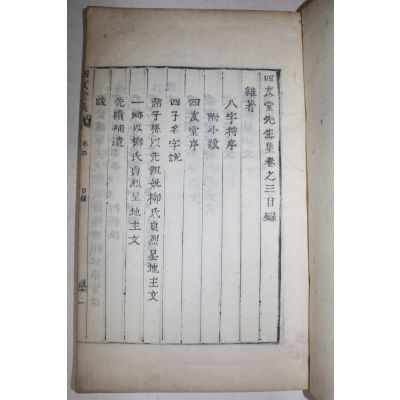 四友堂先生集卷之三目錄
雜著
八字符序
附小跋
四友堂序
四子名字說
諸子孫以先祖妣柳氏貞烈呈地主文
一鄕以柳氏貞烈呈地主文
先蹟補遺
跋
四友堂集
目錄
一